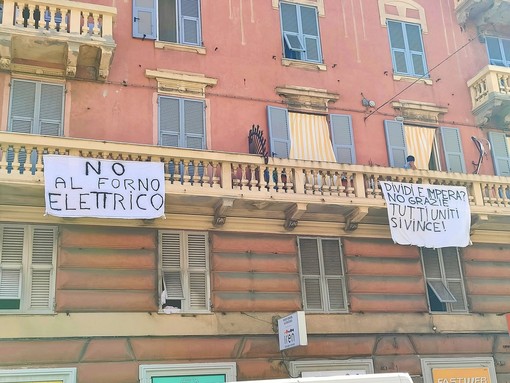 NO
AL FORNO
ELETTRICO
DIVIDI E IMPERA?
NO GRAZIE
TUTTI UNITI
SI VINCE!
iren
FASTWEB